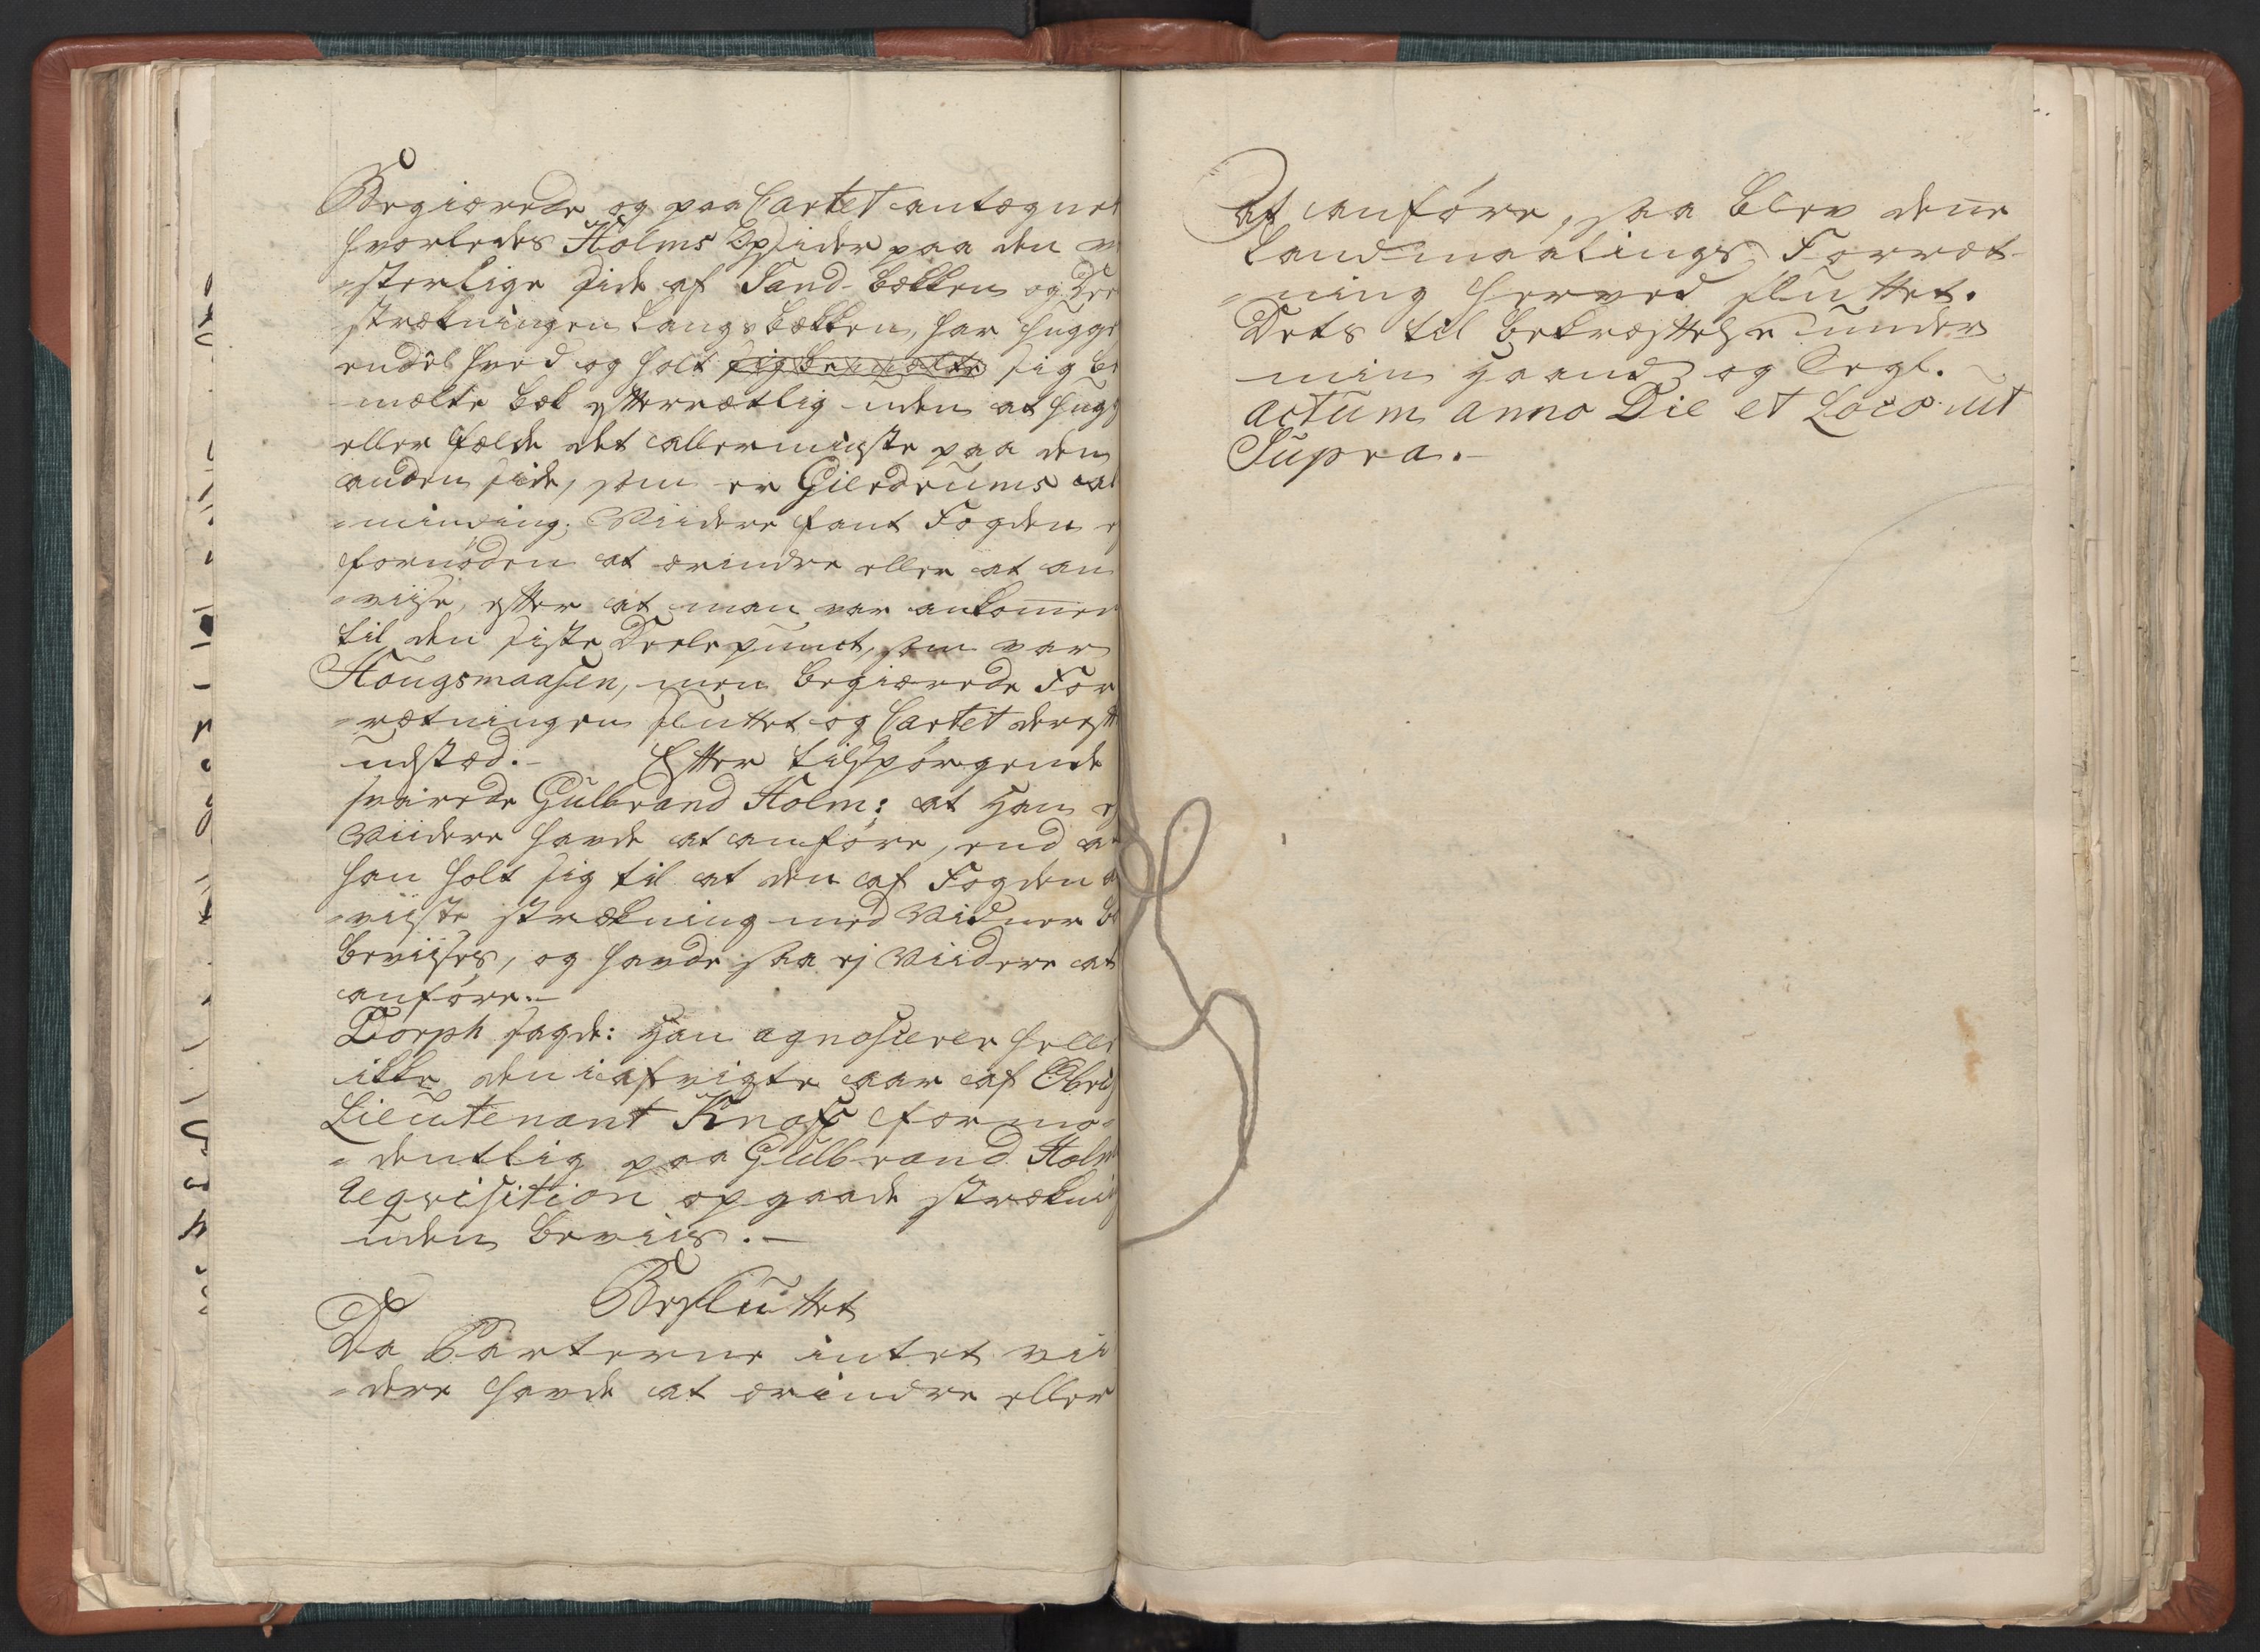 Begiærede og paa Cartet antægnet
hvorledes Holms Opsider paa den v
-sterlige side af Sand-Bækken og Dee
strækningen langs Bækken, har hugge
endel hved og holt sig bemælte sig be
mælte Bæk efterrætlig uden at hugg
eller fælde det allermindste paa den
anden side, som er Gierdrums al
-minding. Viidere fant Fogden ej
fornøden at erindre eller at an
-viise, efter at man var ankommen
til den siste Deele punct, som var
Hougsmaasen, men begiærede For
-rætningen sluttet og Cartet dereft
udstæd.- Efter tilspørgende
svarede Gulbrand Holm: at han ej
Viidere havde at anføre, end at
han holt sig til at den af Fogden a
-viiste strækning med Vidner bl
beviises, og havde saa ej Viidere at
anføre.-
Dorph sagde: han agnoscerer heller
ikke den i afvigte aar af Obrist
Lieutenant Knoff formo-
-dentlig paa Gulbrand Holm
Reqvisition opgaade strækni
uden beviis.-
Besluttet
Da Parterne intet vii
-dere havde at erindre eller
at anføre, saa blev denne
Landmaalings Forræt-
-ning herved sluttet.
Dets til bekræftelse under
min haand og Segl.
actum anno Die et Loco ut
Supra.-